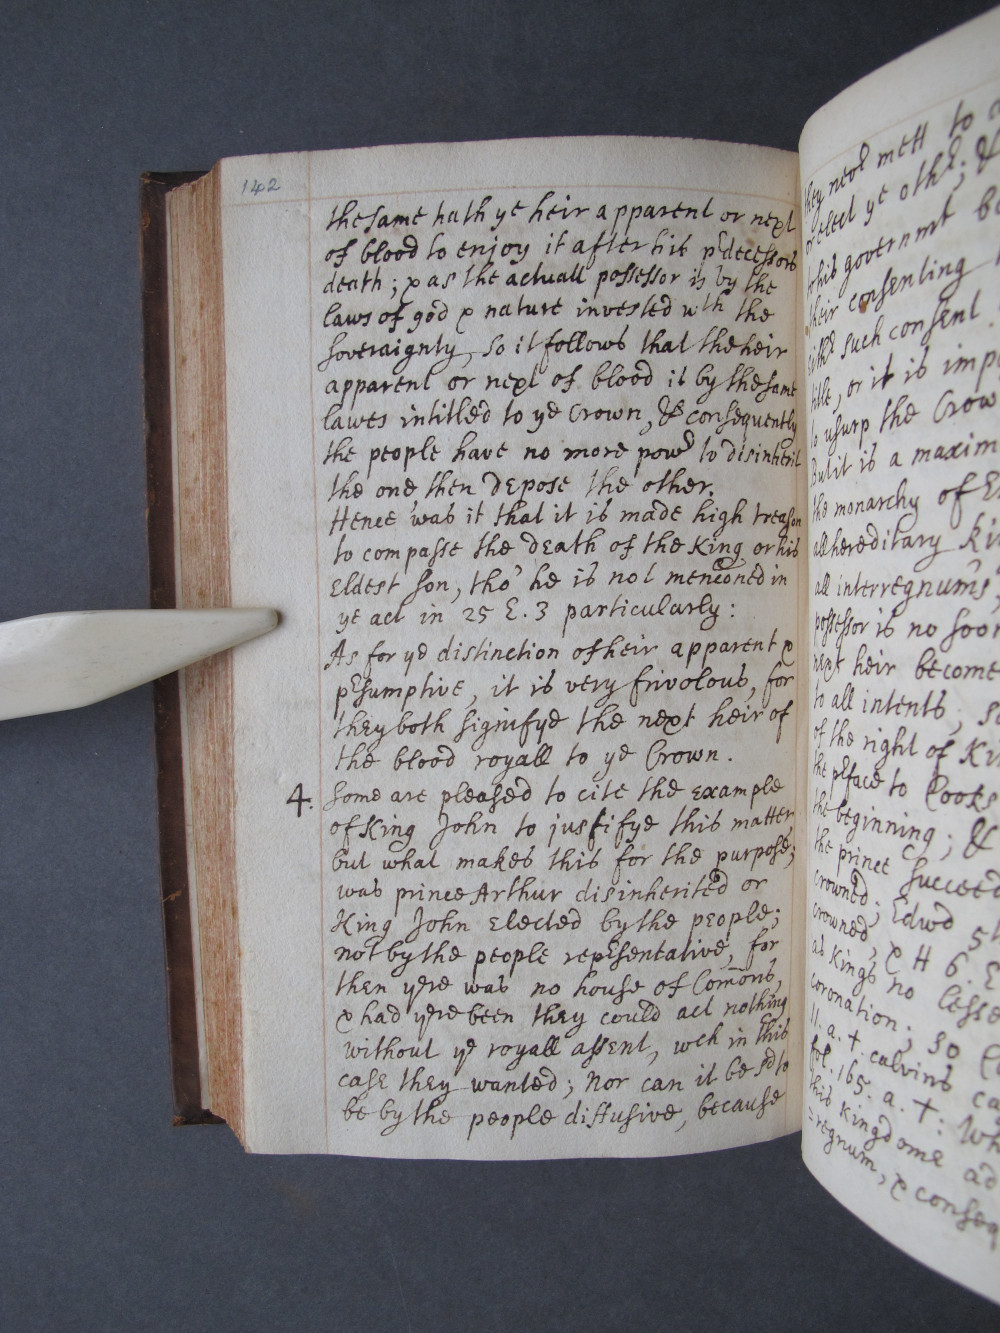 142
the same hath ye heir apparent or next
of blood to enjoy it after his prdecessors
death; & as the actuall possessor is by the
laws of god & nature invested wth the
soveraignty, so it follows that the heir
apparent or next of blood is by the same
lawes intitled to ye Crown, & consequently
the people have no more powr to disinherit
the one then depose the other.
Hence was it that it is made high treason
to compasse the death of the King or his
Eldest son, tho' he is not menconed in
ye act in 25 E. 3 particularly:
As for ye distinction of heir apparent &
presumptive, it is very frivolous, for
they both signifye the next heir of
the blood royall to ye Crown.
4. Some are pleased to cite the example
of King John to justifye this matter,
but what makes this for the purpose;
was prince Arthur disinherited or
King John Elected by the people;
not by the people representative, for
then yere was no house of Comons,
& had yere been they could act nothing
without ye royall assent, wch in this
case they wanted; Nor can it be sd to
be by the people diffusive, because
they nevr mett to
or elect ye othr; &
to his governmt
their consenting
eithr such consent
title, or it is
to usurp the Crow
But it is a maxim
the monarchy of
all hereditary
all interregnums,
possessor is no soon
next heir become
to all intents,
of the right of
the preface to Cooks
the beginning; &
the prince succeed
crowned; Edwd 5t
crowned, & H 6.
as Kings no lesse
coronation; so
11. a. †. calvins ca
fol. 165. a. †: Wh
this Kingdome ad
=regnum, & conseq